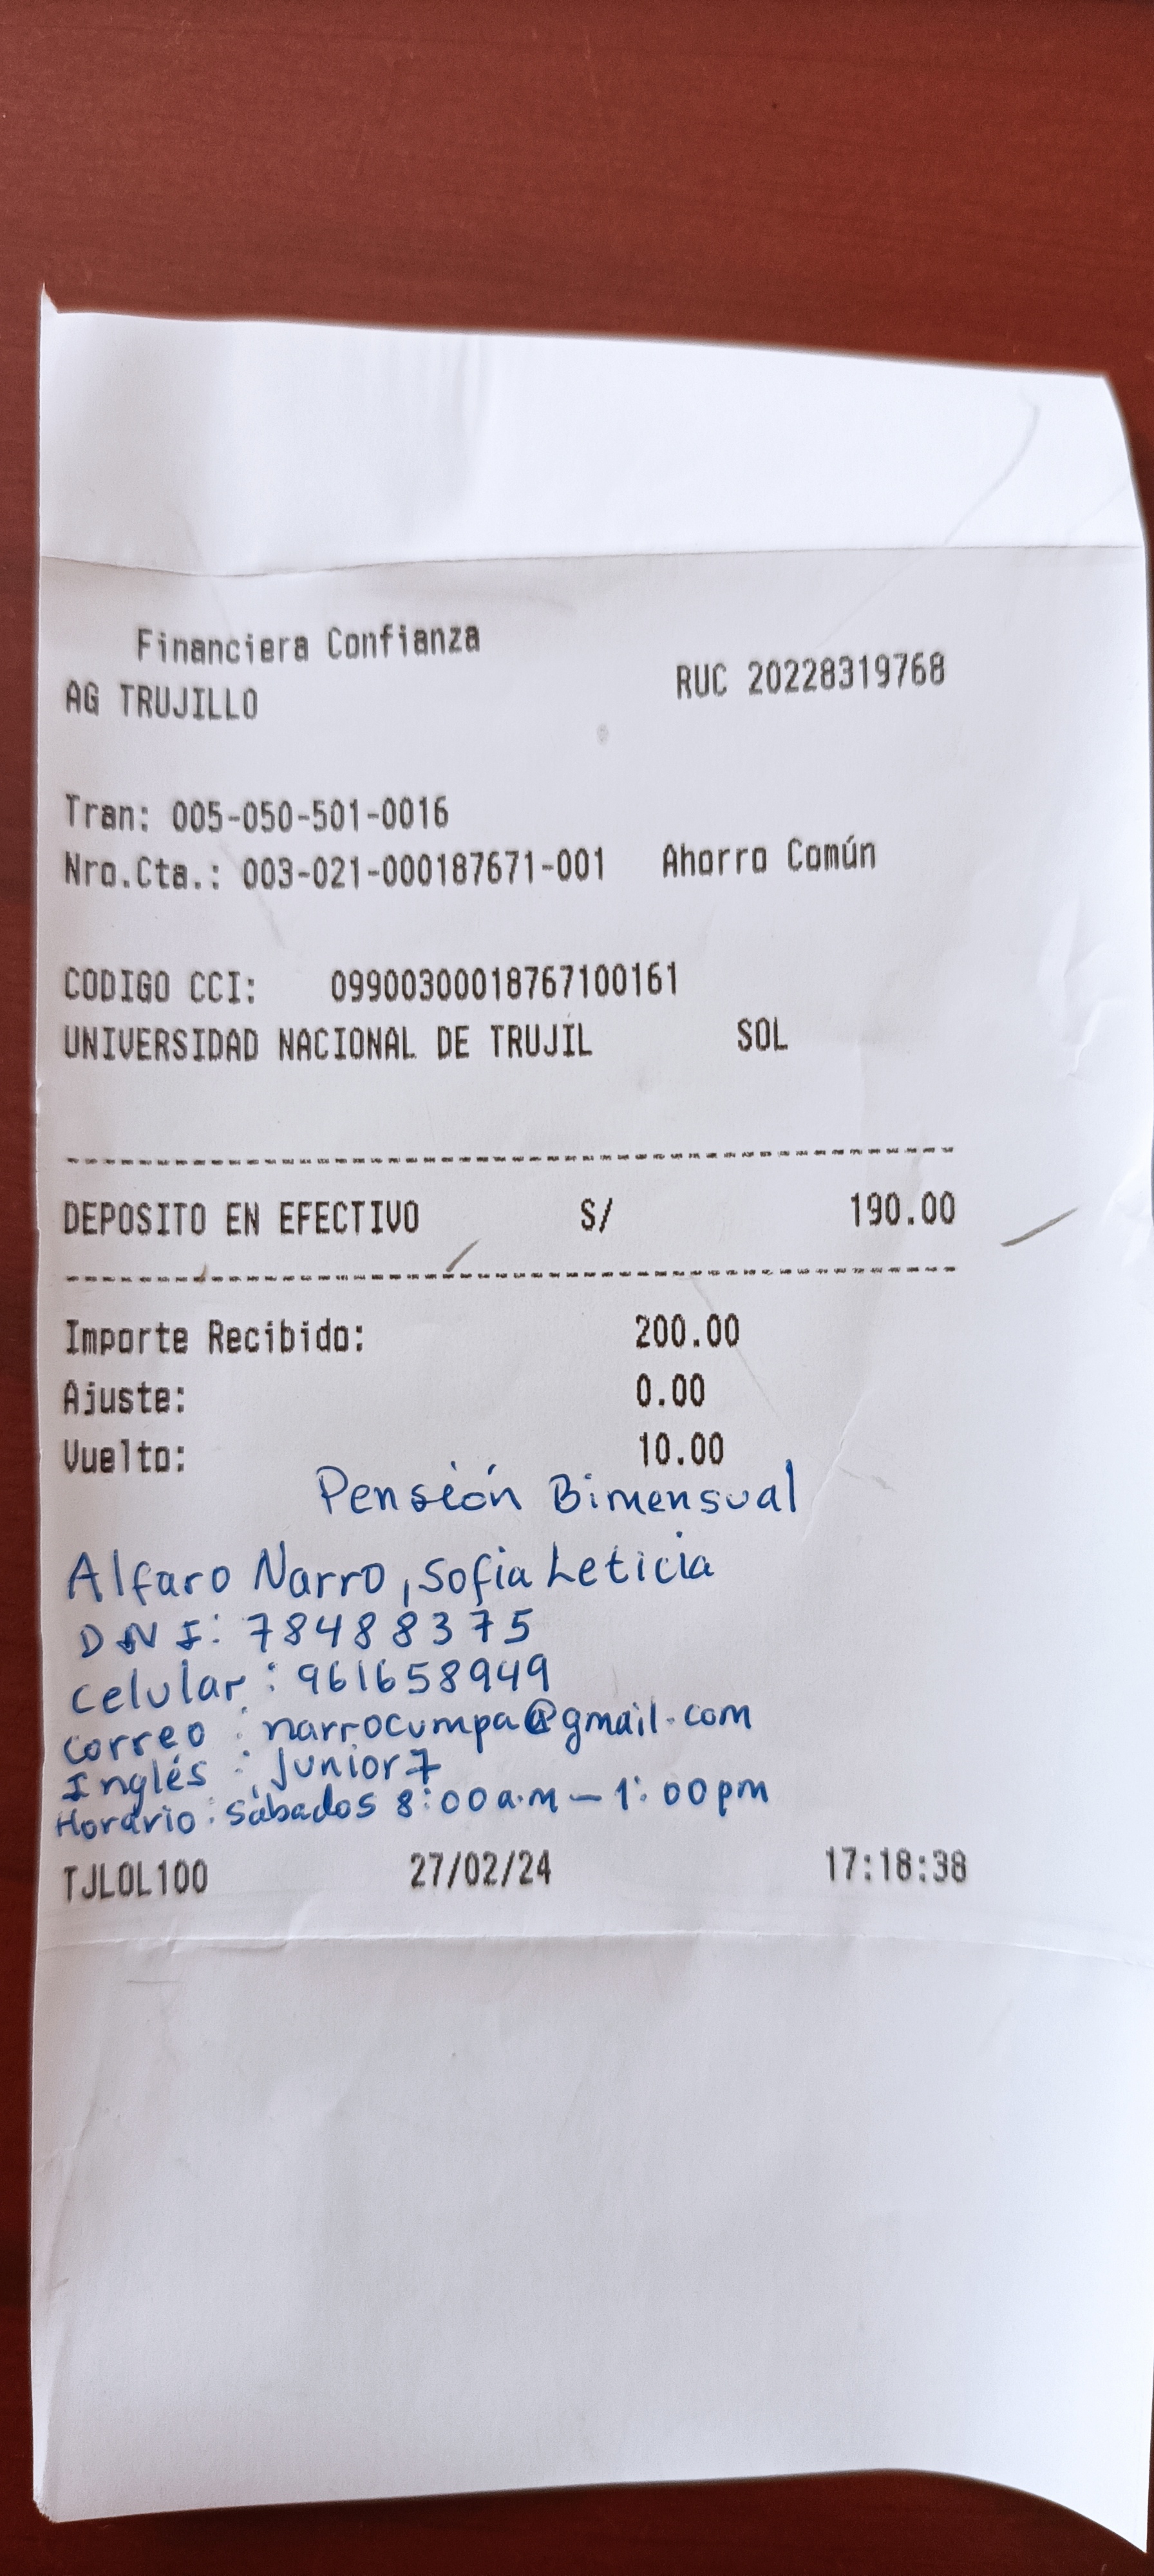 Financiera Confianza
AG TRUJILLO RUC 20228319768
Tran: 005-050-501-0016
Nro.Cta.: 003-021-000187671-001 Ahorro Común
CODIGO CCI: 09900300018767100161
UNIVERSIDAD NACIONAL DE TRUJIL SOL
DEPOSITO EN EFECTIVO S/ 190.00
Importe Recibido: 200.00
Ajuste: 0.00
Vuelto: 10.00
Pensión Bimensual
Alfaro Narro, Sofia Leticia
DNI: 78488375
celular: 961658949
correo: narrocumpa@gmail.com
Inglés: Junior 7
Horario: Sábados 8:00a.m - 1:00pm
TJLOL100 27/02/24 17:18:38